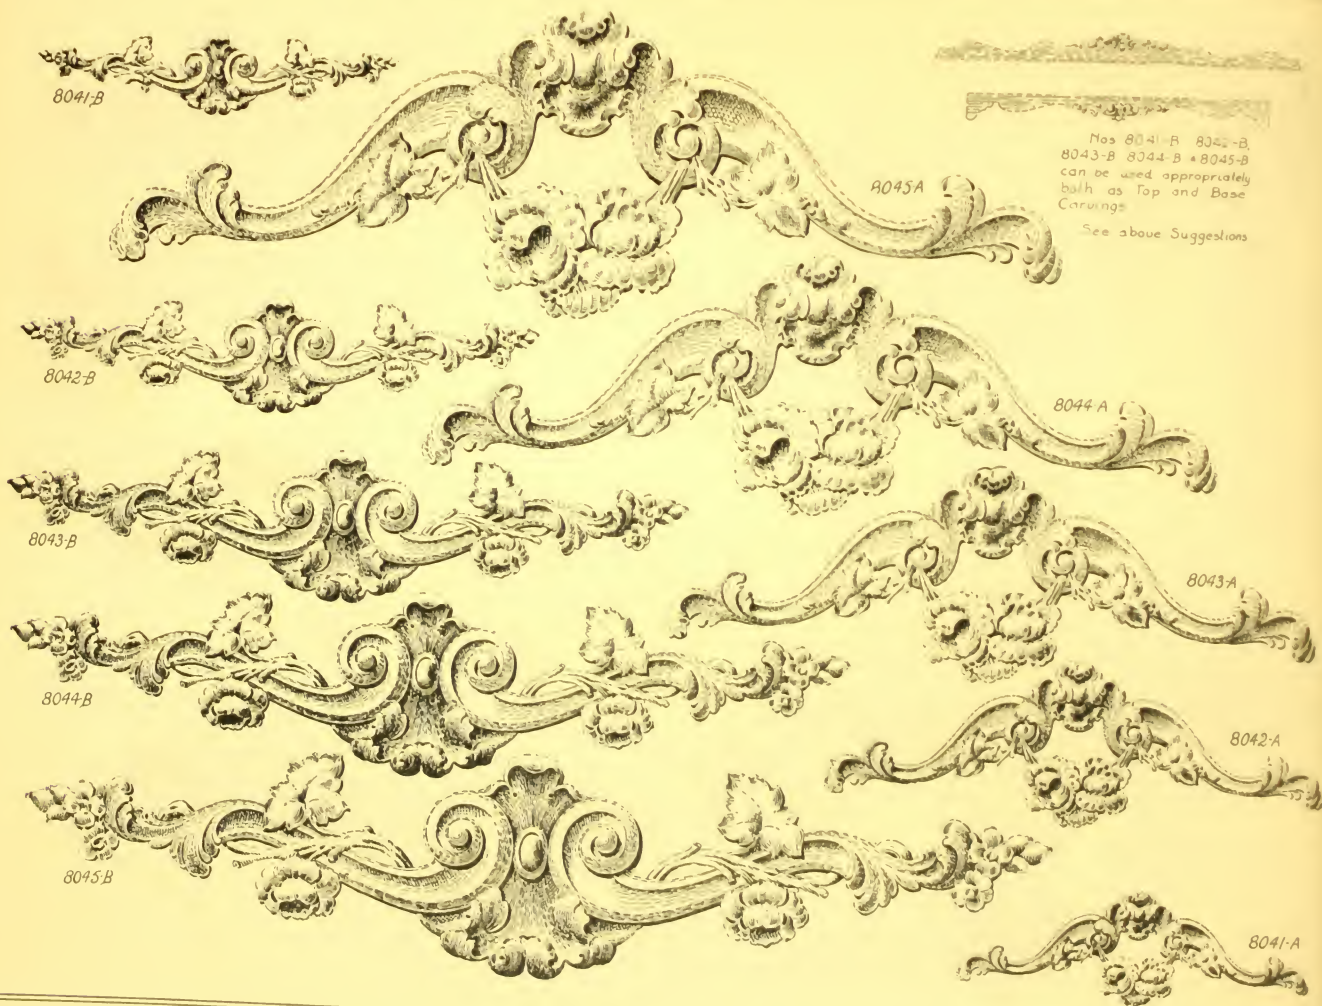 8041-B
8045A
Nos 8041-B 8042-B,
8043-B 8044-B & 8045-B
can be used appropriately
both as Top and Base
Carvings
See above Suggestions
8042-B
8044-A
8043-B
8043-A
8044-B
8042-A
8045-B
8041-A